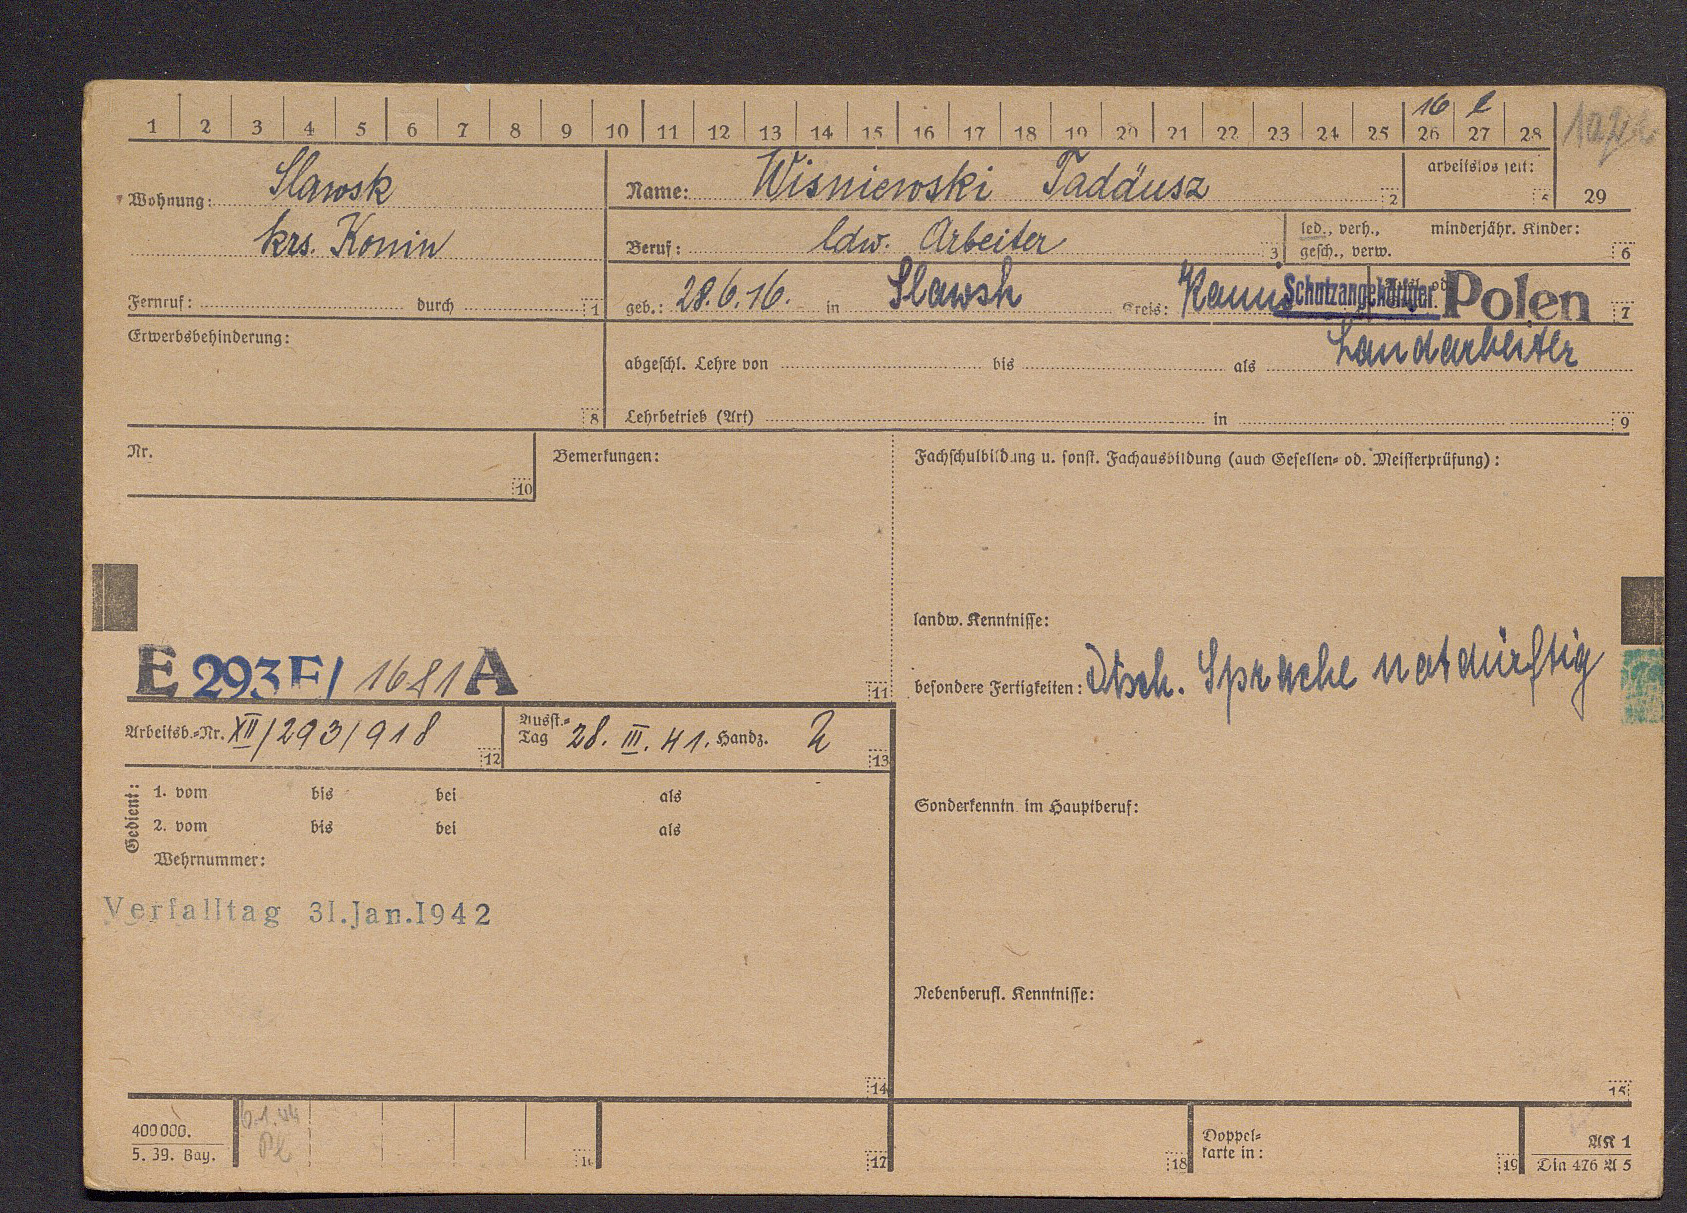 1 2 3 4 5 6 7 8 9 10 11 12 13 14 15 16 17 18 19 20 21 22 23 24 25 26 27 28
16
Wohnung: Slawsk
krs. Konin
Fernruf: durch 1
Name: Wisniewski Taddäusz 2
arbeitslos seit: 5
29
Beruf: ldw. Arbeiter 3
led., verh., gesch., verw.
minderjähr. Kinder: 6
geb.: 28.6.16. in Slawsk Kreis:
Schutzangehöriger. Polen 7
Erwerbsbehinderung:
8
abgeschl. Lehre von bis als Landarbeiter
Lehrbetrieb (Art) in 9
Nr.
10
Bemerkungen:
Fachschulbildung u. sonst. Fachausbildung (auch Gesellen- od. Meisterprüfung):
landw. Kenntnisse:
besondere Fertigkeiten: Dtsch. Sprache notdürftig
E 293 F/ 1681 A
11
Arbeitsb.-Nr. XII/293/918 12
Ausst.-Tag 28. III. 41. Handz. 13
Gedient:
1. vom bis bei als
2. vom bis bei als
Wehrnummer:
Verfalltag 31.Jan.1942
Sonderkenntn. im Hauptberuf:
Nebenberufl. Kenntnisse:
14
15
400 000.
5. 39. Bay.
6.1.44
16
17
18
Doppel-
karte in:
19
AK 1
Din 476 A 5